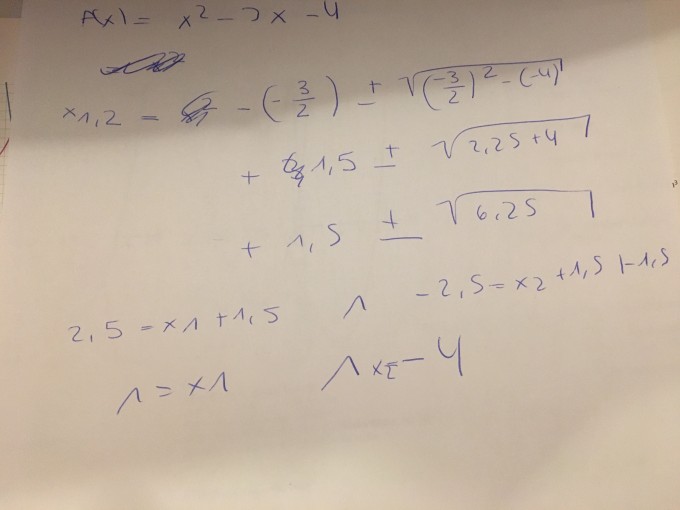 f(x) = x² - 3x - 4
x1,2 = - (- 3/2) ± √((-3/2)² - (-4))
+ 1,5 ± √(2,25 + 4)
+ 1,5 ± √(6,25)
2,5 = x1 + 1,5 ∧ -2,5 = x2 + 1,5 |-1,5
1 = x1 ∧ x2 = -4